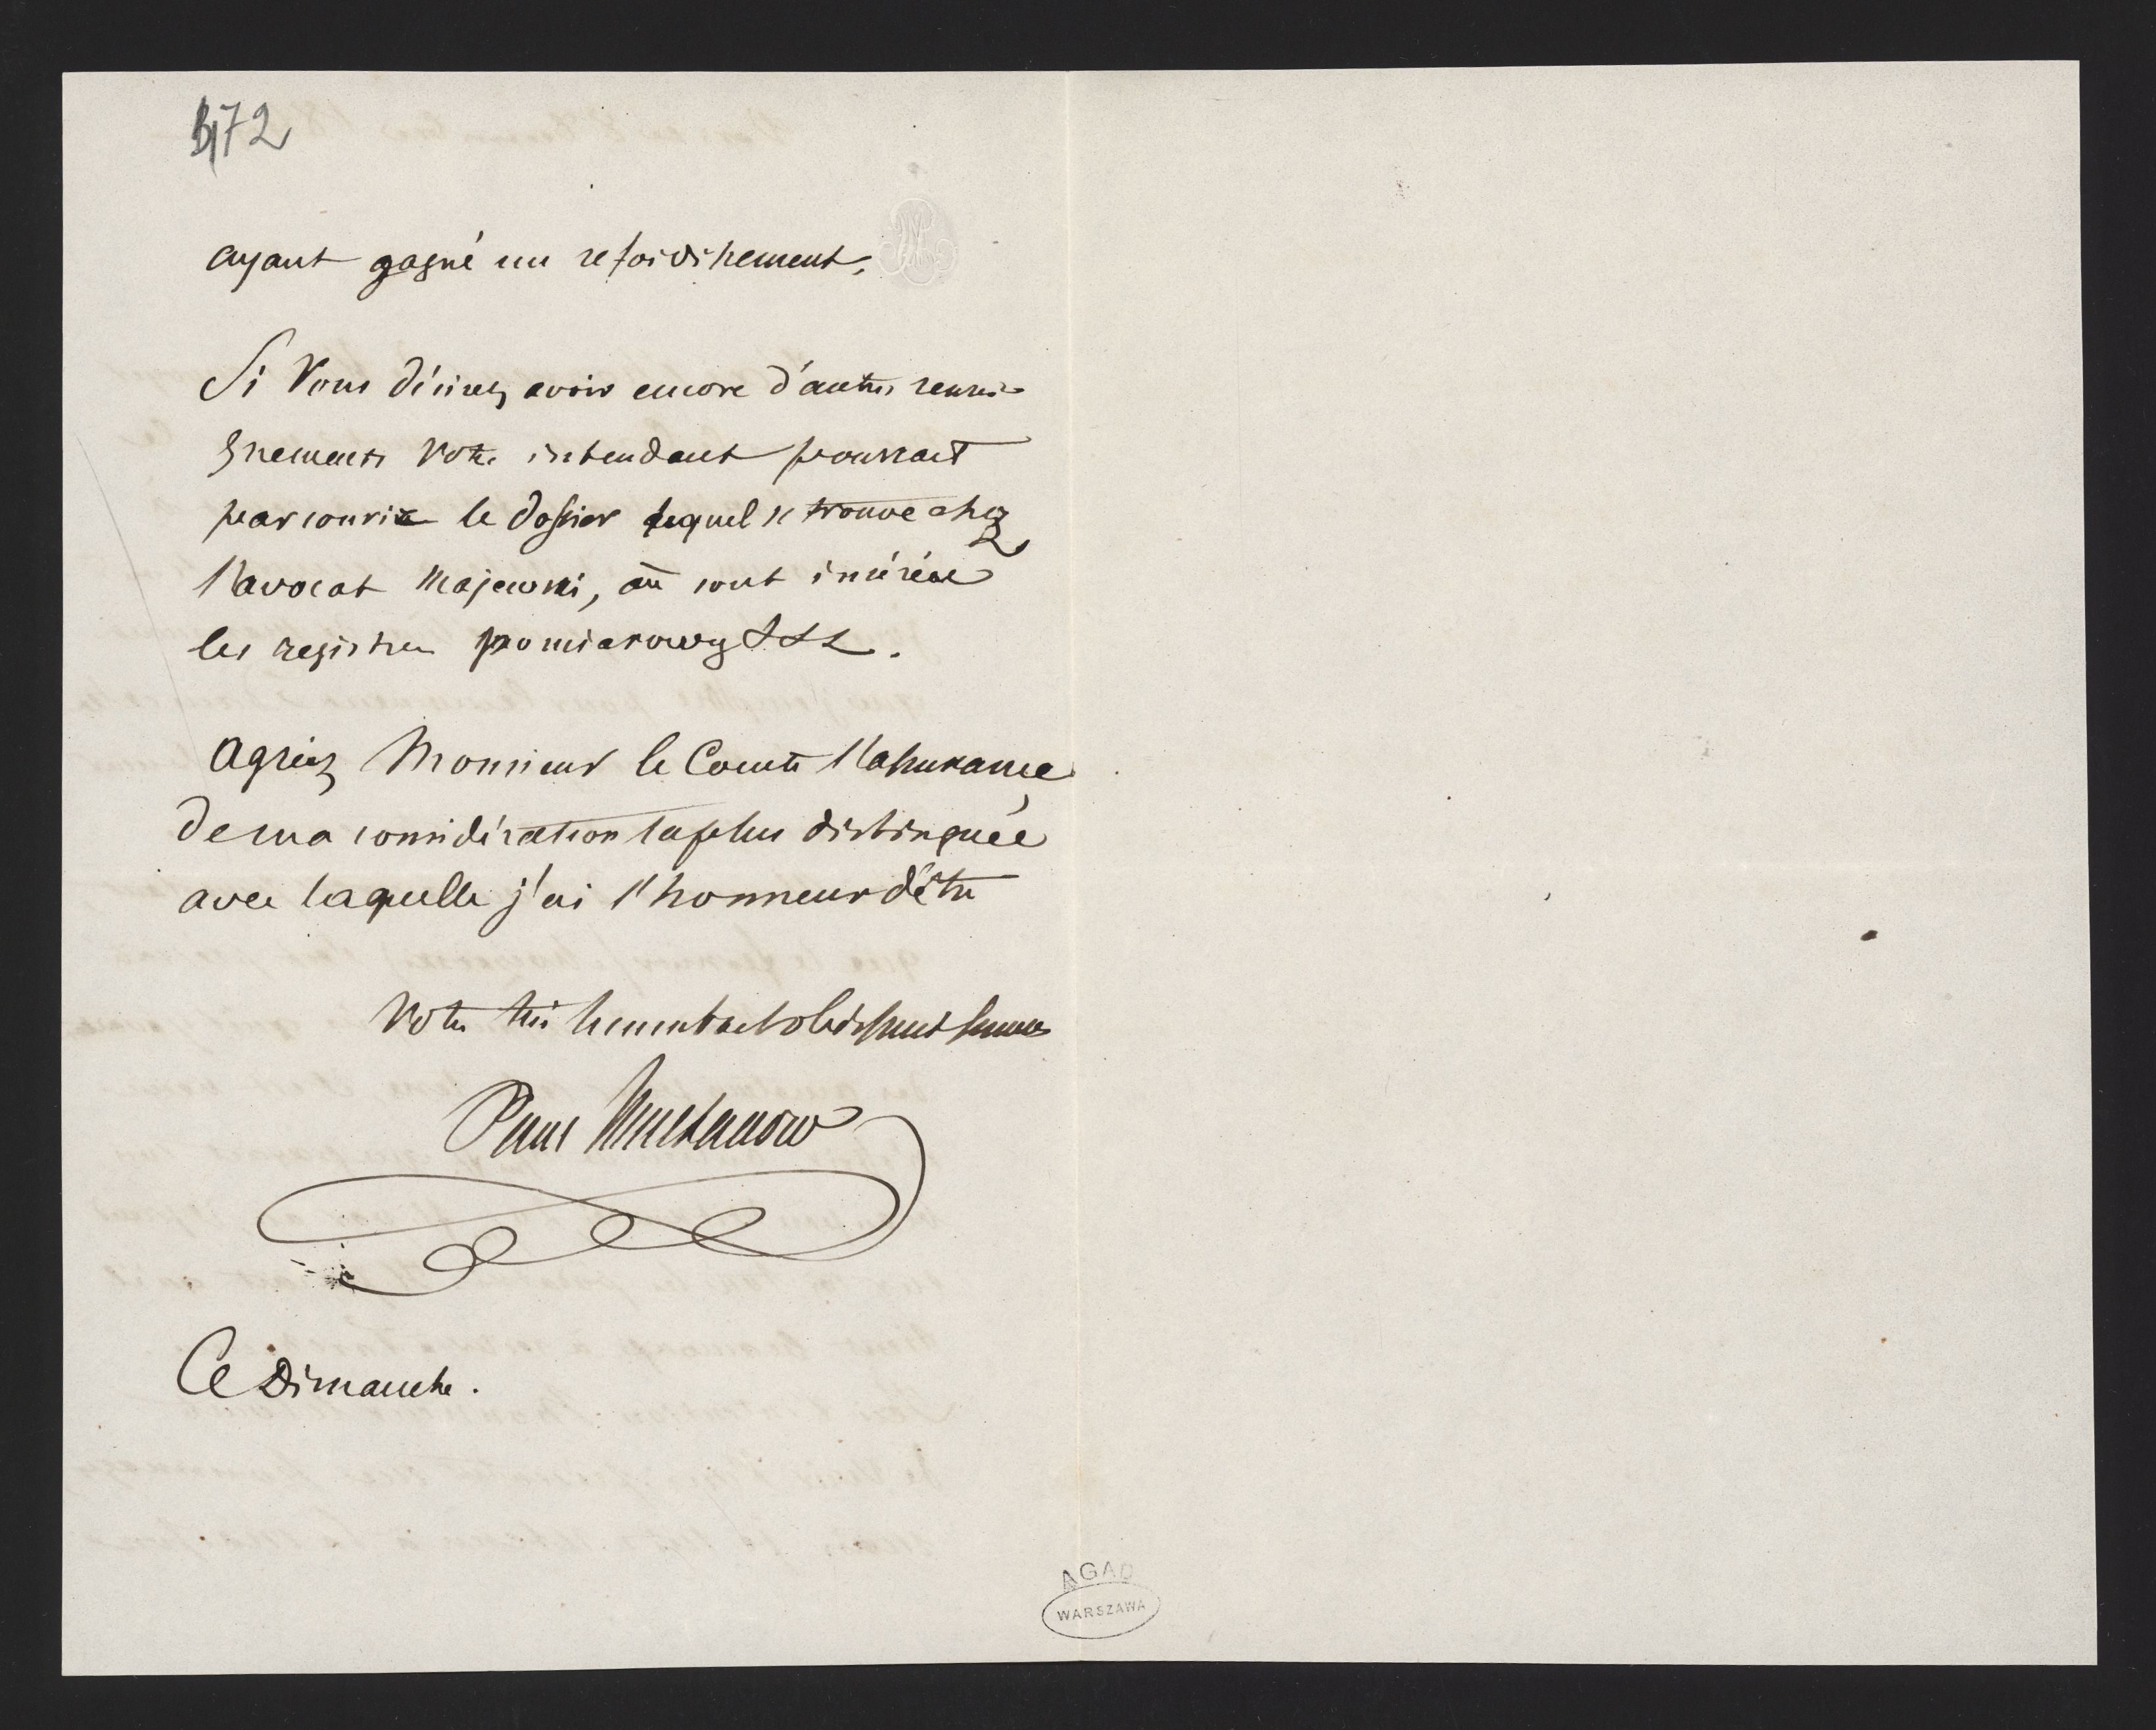 172
ayant gagné un refoidissement.
Si Vous désirez avoir encore d'autres rensei-
gnements Votre intendant pourrait
parcourir le dossier lequel se trouve chez
l'avocat Majewski, où sont insérées
les registres pomiarowy &&&.
Agréez Monsieur le Comte l'assurance
de ma considération la plus distinguée
avec laquelle j'ai l'honneur d'être
Votre très humble et obéissant serviteur
Paul
Ce Dimanche.
AGAD
WARSZAWA